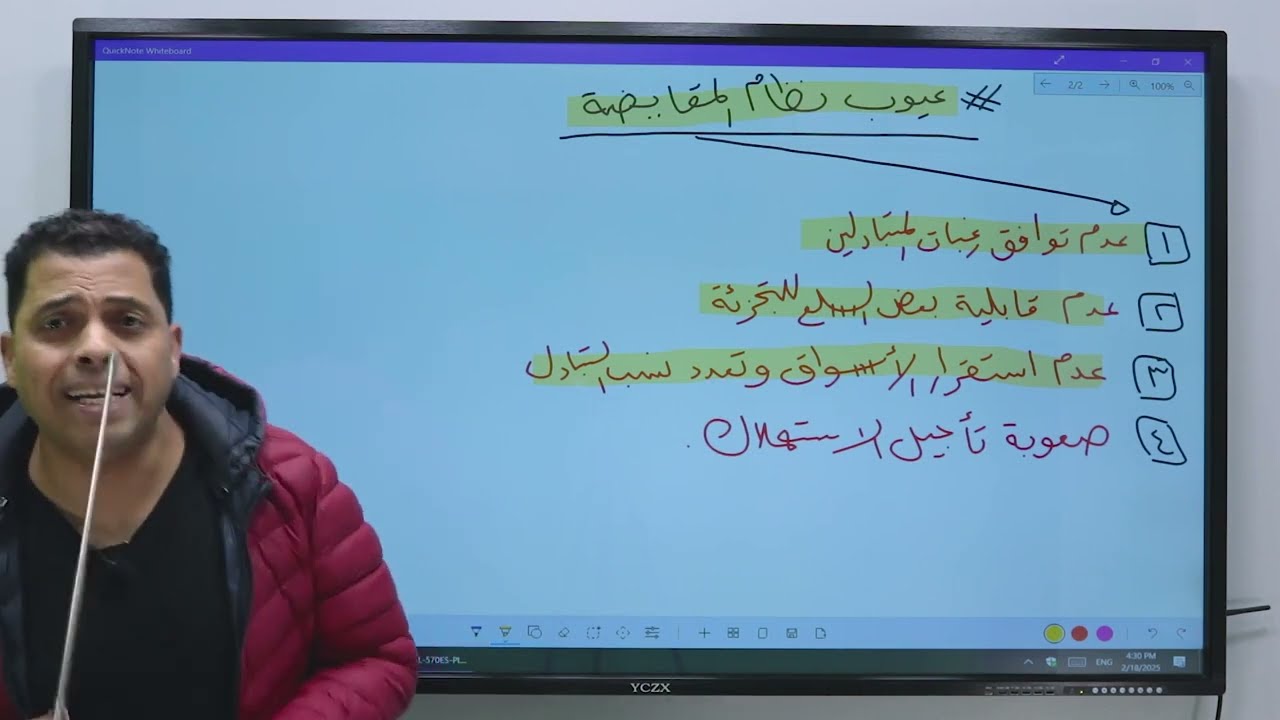 QuickNote Whiteboard
2/2 100%
# عيوب نظام المقايضة
١ عدم توافق رغبات المتبادلين
٢ عدم قابلية بعض السلع للتجزئة
٣ عدم استقرار الأسواق وتعدد نسب التبادل
٤ صعوبة تأجيل الاستهلاك.
L-57DES-PL...
ENG
4:30 PM
2/18/2025
YCZX